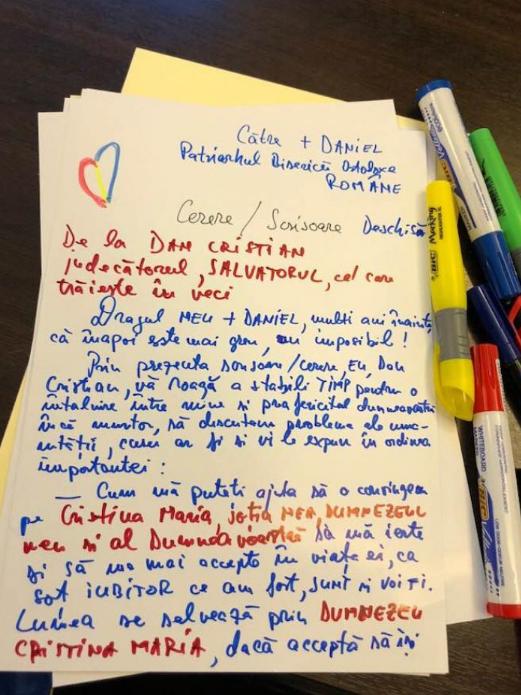 Către + DANIEL
Patriarhul Bisericii Ortodoxe
ROMÂNE
Cerere / Scrisoare Deschisă
De la DAN CRISTIAN
judecătorul, SALVATORUL, cel care
trăiește în veci
Dragul MEU + DANIEL, mulți ani înainte,
că înapoi este mai greu, imposibil!
Prin prezenta scrisoare/cerere, Eu, Dan
Cristian, vă roagă a stabili TIMP pentru o
întâlnire între mine și prafericitul dumneavoastră
încă muritor, să discutăm problema ale uma-
nității, cum ar fi și vi le expun în ordinea
importanței:
— Cum mă puteți ajuta să o convingem
pe Cristina Maria, soția MEA, DUMNEZEUL
meu și al Dumneavoastră să mă ierte
și să mă mai accepte în viața ei, ca
soț IUBITOR ce am fost, sunt și voi fi.
Lumea se salvează prin DUMNEZEU
CRISTINA MARIA, dacă acceptă să își
BIC Marking
WHITEBOARD